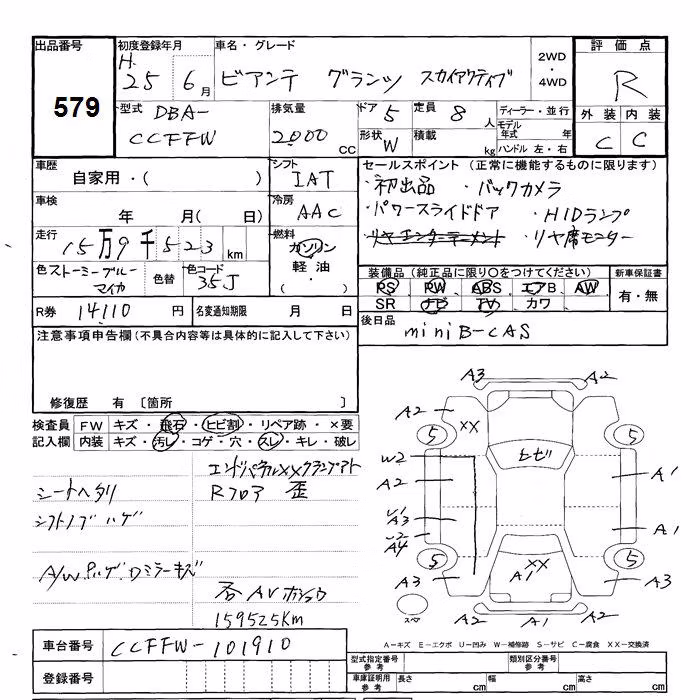 出品番号 初度登録年月 車名・グレード 2WD・4WD 評価点
579 H.25 6月 ビアンテ グランツ スカイアクティブ R
型式 DBA-CCFFW 排気量 2000cc ドア 5 定員 8人 ディーラー・並行 外装 内装
形状 W 積載 kg モデル年式 年 ハンドル 左・右 C C
車歴 自家用・( ) シフト IAT セールスポイント (正常に機能するものに限ります)
・初出品 ・バックカメラ
車検 年 月( 日) 冷房 AAC ・パワースライドドア ・HIDランプ
走行 15万9千523km 燃料 ガソリン 軽油・( ) ・リヤエンターテーメント ・リヤ席モニター
色 ストーミーブルーマイカ 色替 色コード 35J
装備品 (純正品に限り○をつけてください) 新車保証書
PS PW ABS エアB AW 有・無
SR ナビ TV カワ
R券 14110円 名変通知期限 月 日
後日品 miniB-CAS
注意事項申告欄(不具合内容等は具体的に記入して下さい)
修復歴 有 〔箇所 〕
検査員記入欄 FW キズ・飛石・ヒビ割・リペア跡・×要
内装 キズ・汚レ・コゲ・穴・スレ・キレ・破レ
エンドパネルXXクランプアト
シートヘタリ Rフロア 歪
シフトノブハゲ
A/Wハゲ.Dミラーキズ
否AVホショウ
159525Km
A3 A2
A2 XX
5 5
W2 ヒビ
A2 A1
U1
A3 A1
U2
A4
5 XX 5
A3 A1 A3
スペア
A2 A1 A2
車台番号 CCFFW-101910
A-キズ E-エクボ U-凹み W-補修跡 S-サビ C-腐食 XX-交換済
登録番号
型式指定番号 参考 類別区分番号 参考
車庫証明用 参考 長さ cm 幅 cm 高さ cm